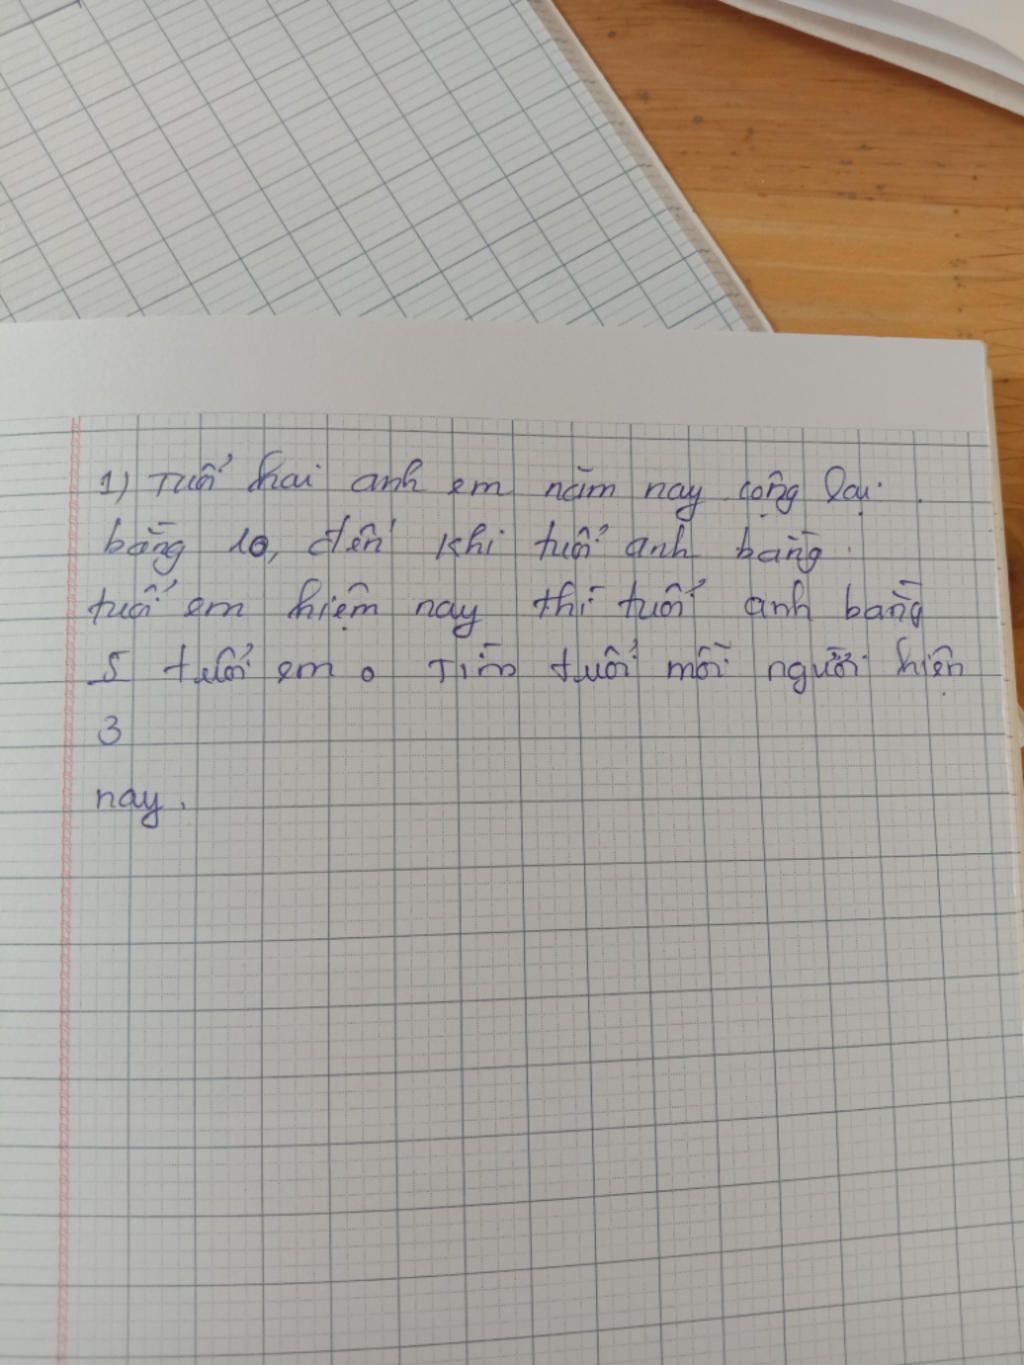 1) Tuổi hai anh em năm nay cộng lại
bằng 10, đến khi tuổi anh bằng
tuổi em hiện nay thì tuổi anh bằng
5 tuổi em. Tìm tuổi mỗi người hiện
3
nay.